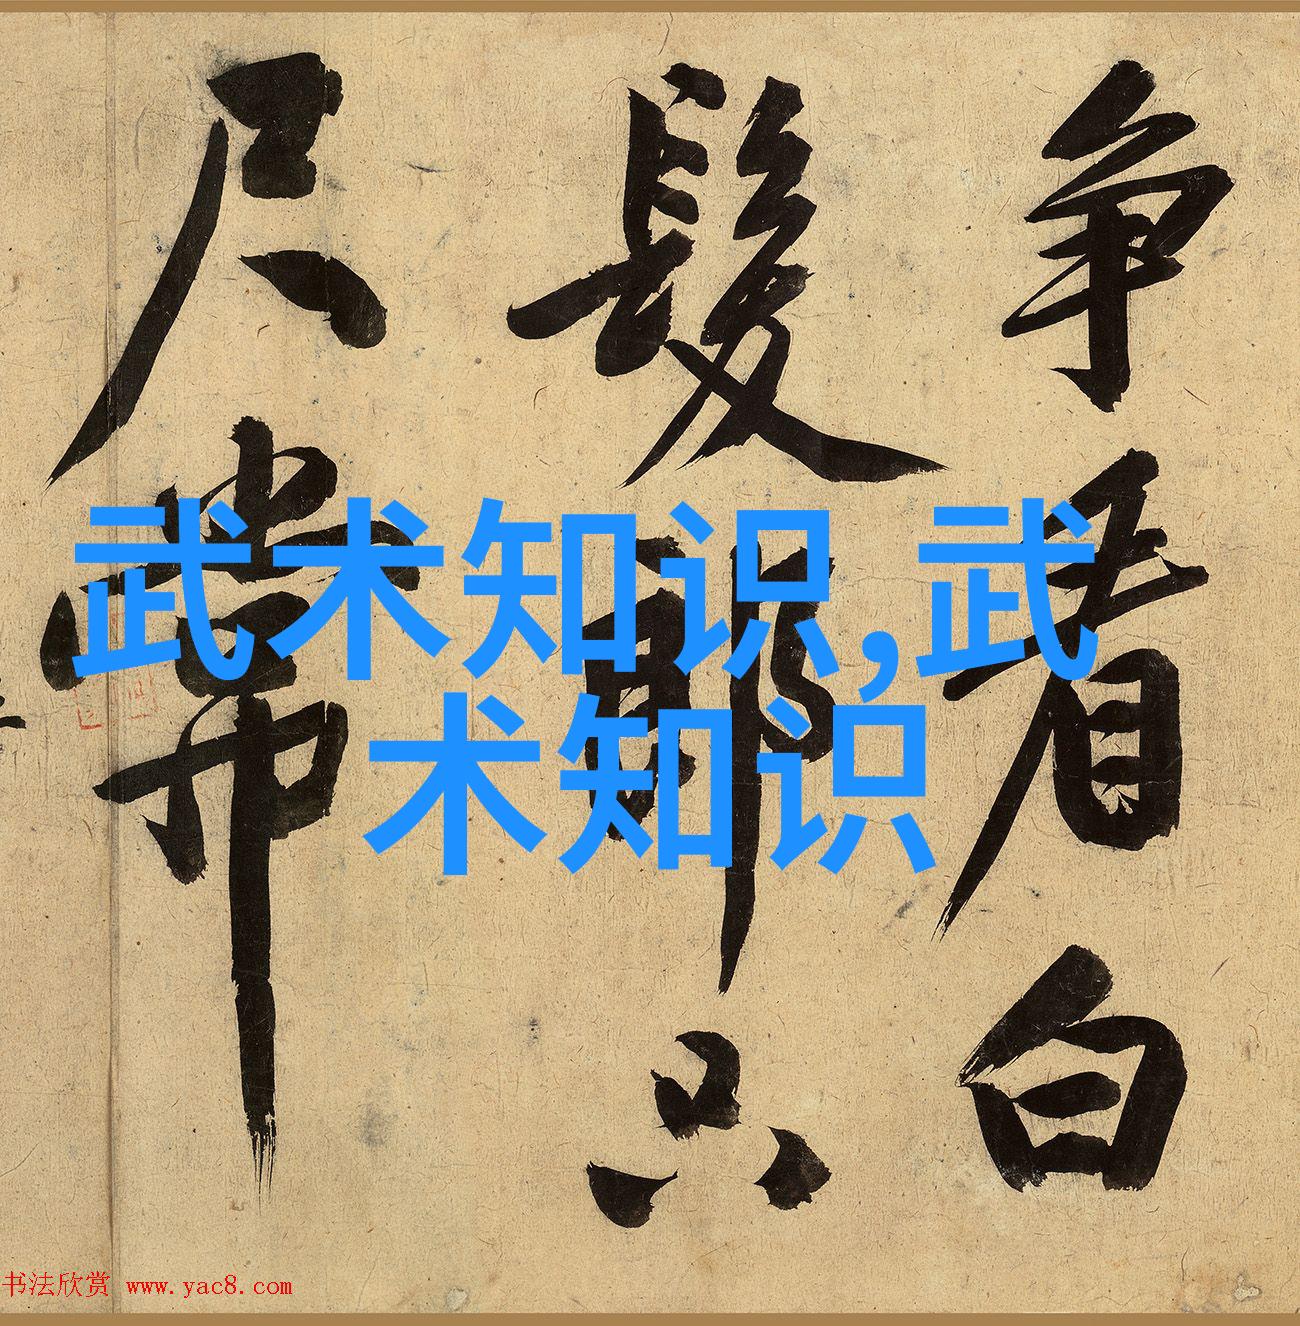 争看白
髮郎只
尺常
武术知识,武
术知识
书法欣赏 www.yac8.com